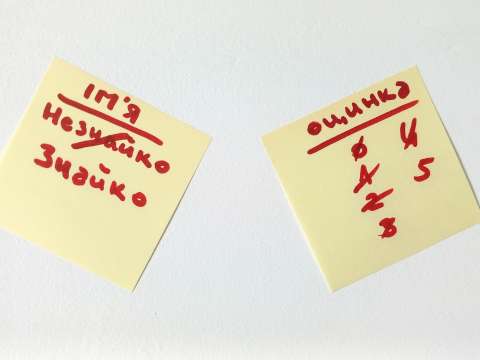 ІМ'Я
Незнайко
Знайко
ощинка
0 4
1 5
2
3